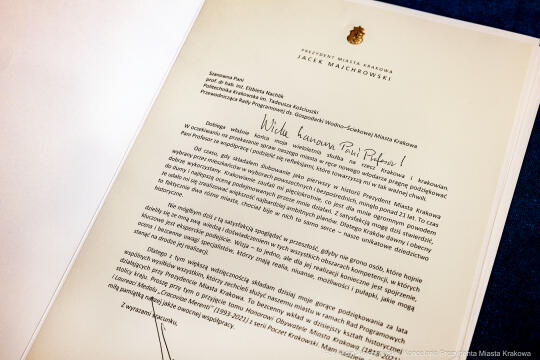 PREZYDENT MIASTA KRAKOWA
JACEK MAJCHROWSKI
Szanowna Pani
prof. dr hab. inż. Elżbieta Nachlik
Politechnika Krakowska im. Tadeusza Kościuszki
Przewodnicząca Rady Programowej ds. Gospodarki Wodno-Ściekowej Miasta Krakowa
Pani Profesor!
Dobiega właśnie końca moja wieloletnia służba na rzecz Krakowa i krakowian.
W oczekiwaniu na przekazanie spraw naszego miasta w ręce nowego włodarza pragnę podziękować
Pani Profesor za współpracę i podzielić się refleksjami, które towarzyszą mi w tak ważnej chwili.
Od czasu, gdy składałem ślubowanie jako pierwszy w historii Prezydent Miasta Krakowa
wybrany przez mieszkańców w wyborach powszechnych i bezpośrednich, minęło ponad 21 lat. To czas
dobrze wykorzystany. Krakowianie zaufali mi pięciokrotnie, co jest dla mnie ogromnym powodem
do dumy i najlepszą oceną podejmowanych przeze mnie działań. Z satysfakcją mogę dziś stwierdzić,
że udało mi się zrealizować większość najbardziej ambitnych planów. Dlatego Kraków dawny i obecny
to faktycznie dwa różne miasta, chociaż bije w nich to samo serce – nasze unikatowe dziedzictwo
historyczne.
Nie mógłbym dziś z tą satysfakcją spoglądać w przeszłość, gdyby nie grono osób, które hojnie
dzieliły się ze mną swą wiedzą i doświadczeniem w tych wszystkich obszarach kompetencji, w których
kluczowe jest eksperckie podejście. Wizja – to jedno, ale dla jej realizacji konieczne jest spojrzenie,
ocena i bezcenne uwagi specjalistów, którzy znają realia, niuanse, możliwości i pułapki, jakie mogą
stanąć na drodze jej realizacji.
Dlatego z tym większą wdzięcznością składam dzisiaj moje gorące podziękowania za lata
wspólnych wysiłków wszystkim, którzy zechcieli służyć naszemu miastu w ramach Rad Programowych
działających przy Prezydencie Miasta Krakowa. To bezcenny wkład w dzisiejszy kształt historycznej
stolicy kraju. Proszę przy tym o przyjęcie tomu Honorowi Obywatele Miasta Krakowa (1818-2021)
i Laureaci Medalu „Cracoviae Merenti” (1993-2021) z serii Poczet Krakowski. Mam nadzieję,
miłą pamiątką naszej jakże owocnej współpracy.
Z wyrazami szacunku,
Prezydenta Miasta Krakowa